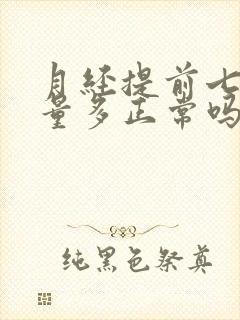 月经提前七
量多正常吗
纯黑色祭奠